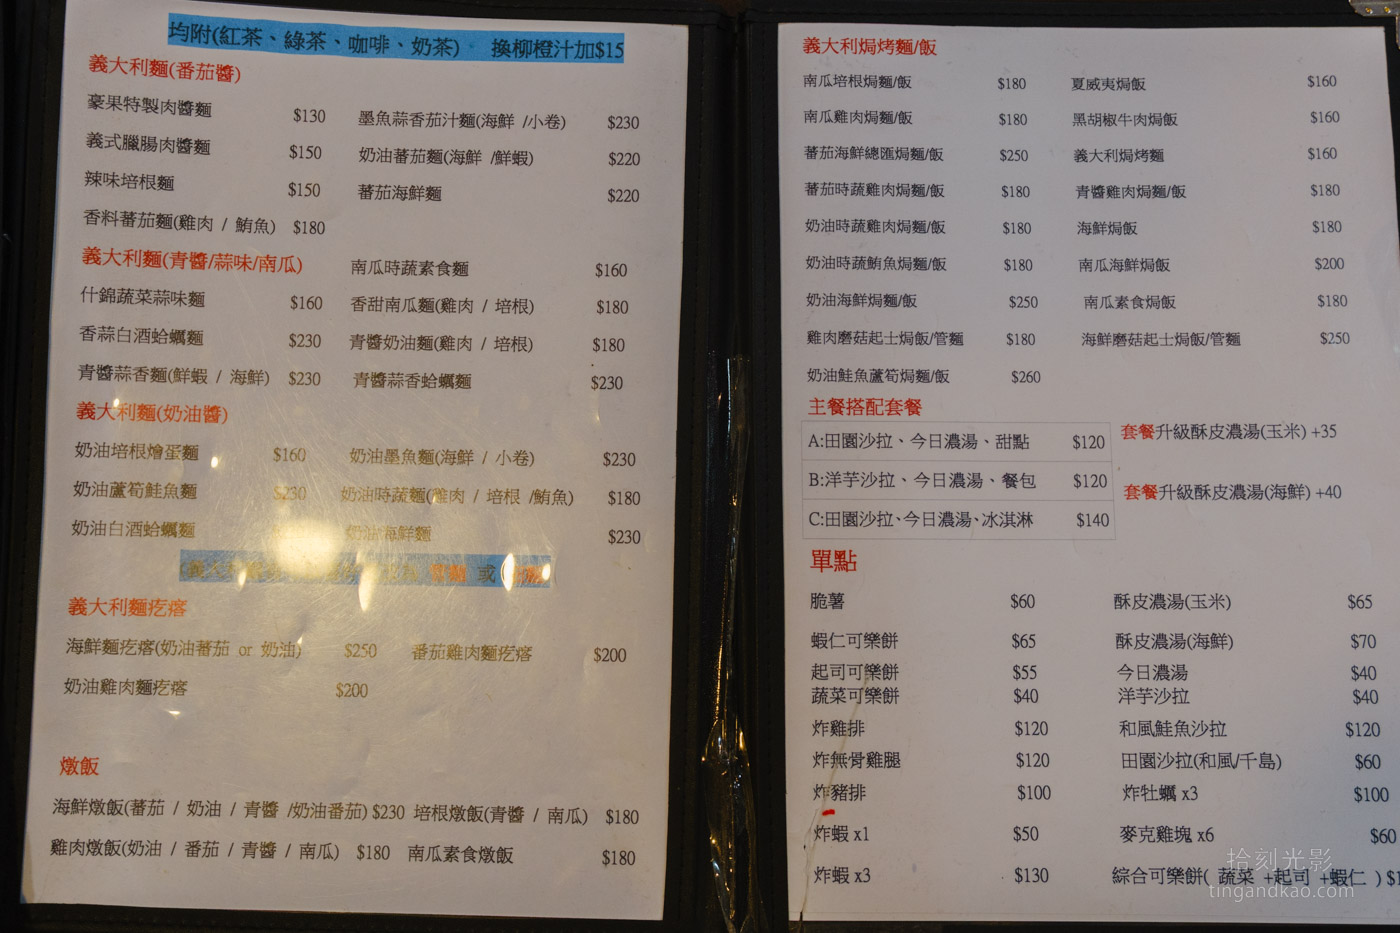 均附(紅茶、綠茶、咖啡、奶茶) 換柳橙汁加$15
義大利麵(番茄醬)
豪果特製肉醬麵 $130 墨魚蒜香茄汁麵(海鮮 /小卷) $230
義式臘腸肉醬麵 $150 奶油蕃茄麵(海鮮 /鮮蝦) $220
辣味培根麵 $150 蕃茄海鮮麵 $220
香料蕃茄麵(雞肉 / 鮪魚) $180
義大利麵(青醬/蒜味/南瓜) 南瓜時蔬素食麵 $160
什錦蔬菜蒜味麵 $160 香甜南瓜麵(雞肉 / 培根) $180
香蒜白酒蛤蠣麵 $230 青醬奶油麵(雞肉 / 培根) $180
青醬蒜香麵(鮮蝦 / 海鮮) $230 青醬蒜香蛤蠣麵 $230
義大利麵(奶油醬)
奶油培根燴蛋麵 $160 奶油墨魚麵(海鮮 / 小卷) $230
奶油蘆筍鮭魚麵 $230 奶油時蔬麵(雞肉 / 培根 /鮪魚) $180
奶油白酒蛤蠣麵 奶油海鮮麵 $230
或
義大利麵疙瘩
海鮮麵疙瘩(奶油蕃茄 or 奶油) $250 番茄雞肉麵疙瘩 $200
奶油雞肉麵疙瘩 $200
燉飯
海鮮燉飯(蕃茄 / 奶油 / 青醬 /奶油番茄) $230 培根燉飯(青醬 / 南瓜) $180
雞肉燉飯(奶油 / 番茄 / 青醬 / 南瓜) $180 南瓜素食燉飯 $180
義大利焗烤麵/飯
南瓜培根焗麵/飯 $180 夏威夷焗飯 $160
南瓜雞肉焗麵/飯 $180 黑胡椒牛肉焗飯 $160
蕃茄海鮮總匯焗麵/飯 $250 義大利焗烤麵 $160
蕃茄時蔬雞肉焗麵/飯 $180 青醬雞肉焗麵/飯 $180
奶油時蔬雞肉焗麵/飯 $180 海鮮焗飯 $180
奶油時蔬鮪魚焗麵/飯 $180 南瓜海鮮焗飯 $200
奶油海鮮焗麵/飯 $250 南瓜素食焗飯 $180
雞肉磨菇起士焗飯/管麵 $180 海鮮磨菇起士焗飯/管麵 $250
奶油鮭魚蘆筍焗麵/飯 $260
主餐搭配套餐
A:田園沙拉、今日濃湯、甜點 $120 套餐升級酥皮濃湯(玉米) +35
B:洋芋沙拉、今日濃湯、餐包 $120 套餐升級酥皮濃湯(海鮮) +40
C:田園沙拉、今日濃湯、冰淇淋 $140
單點
脆薯 $60 酥皮濃湯(玉米) $65
蝦仁可樂餅 $65 酥皮濃湯(海鮮) $70
起司可樂餅 $55 今日濃湯 $40
蔬菜可樂餅 $40 洋芋沙拉 $40
炸雞排 $120 和風鮭魚沙拉 $120
炸無骨雞腿 $120 田園沙拉(和風/千島) $60
炸豬排 $100 炸牡蠣 x3 $100
炸蝦 x1 $50 麥克雞塊 x6 $60
炸蝦 x3 $130 綜合可樂餅( 蔬菜 +起司 +蝦仁 ) $1
拾刻光影
tingandkao.com